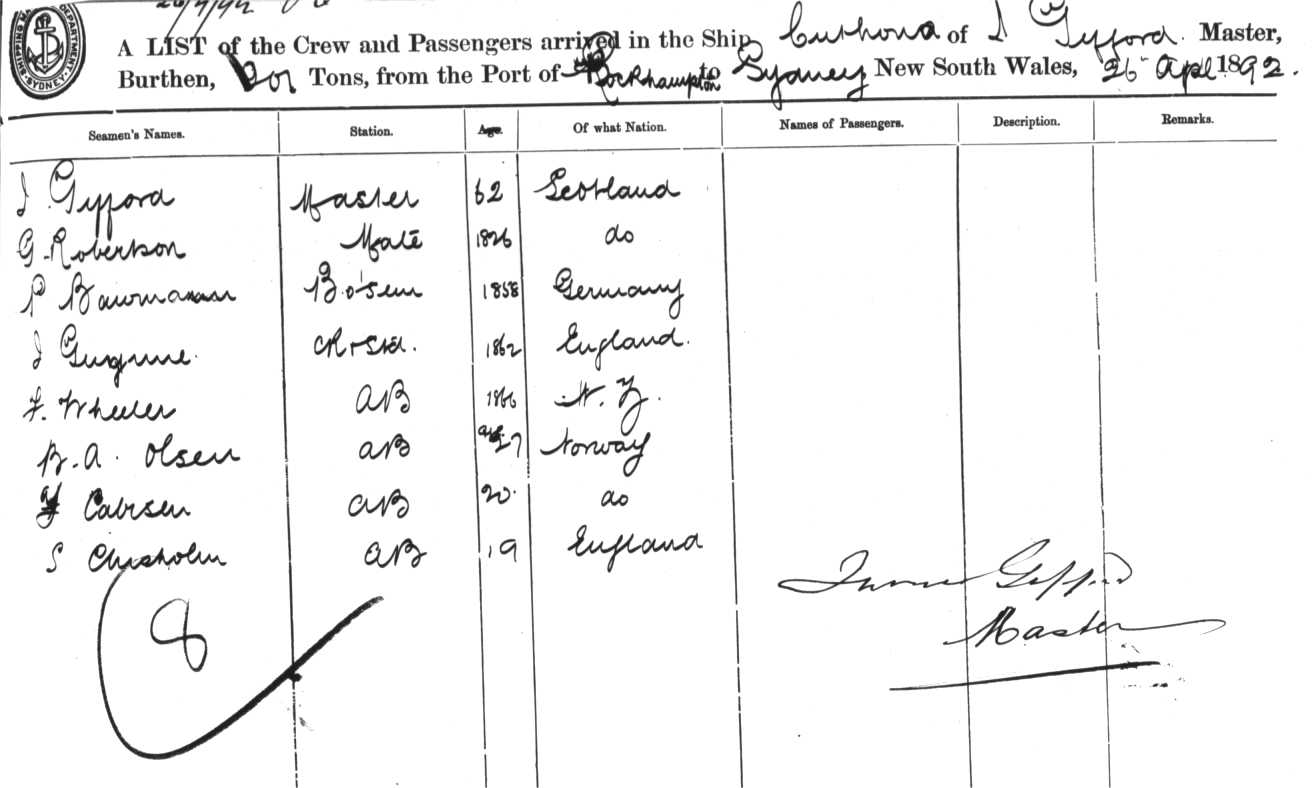 26/4/92
SHIPPING MASTER'S DEPARTMENT SYDNEY
A LIST of the Crew and Passengers arrived in the Ship Cuthona of J Gifford. Master,
Burthen, Tons, from the Port of Rockhampton to Sydney New South Wales, 26 Apl 1892.
Seamen's Names. Station. Age. Of what Nation. Names of Passengers. Description. Remarks.
J Gifford Master 62 Scotland
G. Robertson Mate 1826 do
P Bo'sun 1858 Germany
J 1862 England.
F. Wheeler AB 1866 N. Z.
B. A. Olsen AB age 27 Norway
AB 20. do
S Chisholm AB 19 England
James Gifford
Master
8